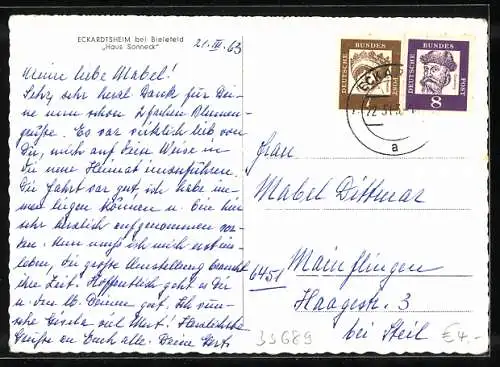 ECKARDTSHEIM bei Bielefeld
„Haus Sonneck"
21. III. 63
Meine liebe Mabel!
Sehr, sehr herzl. Dank für Dei-
ne nun schon 2 fachen Blumen-
grüße. Es war wirklich lieb von
Dir, mich auf diese Weise in
die neue Heimat einzuführen.
Die Fahrt war gut, ich habe im-
mer liegen können u. bin hier
sehr herzlich aufgenommen wor-
den. Nun muß ich mich erst ein-
leben, die große Umstellung braucht
ihre Zeit. Hoffentlich geht's Dir
u. den gut. Ich wün-
sche viel Mut! Herzliche
Grüße an Euch alle. Deine
DEUTSCHE BUNDES POST
7
DEUTSCHE BUNDES POST
8
ECKA
22
a
Frau
Mabel Dittmar
6451 Mainflingen
Haagstr. 3
bei
33689
€ 4.-